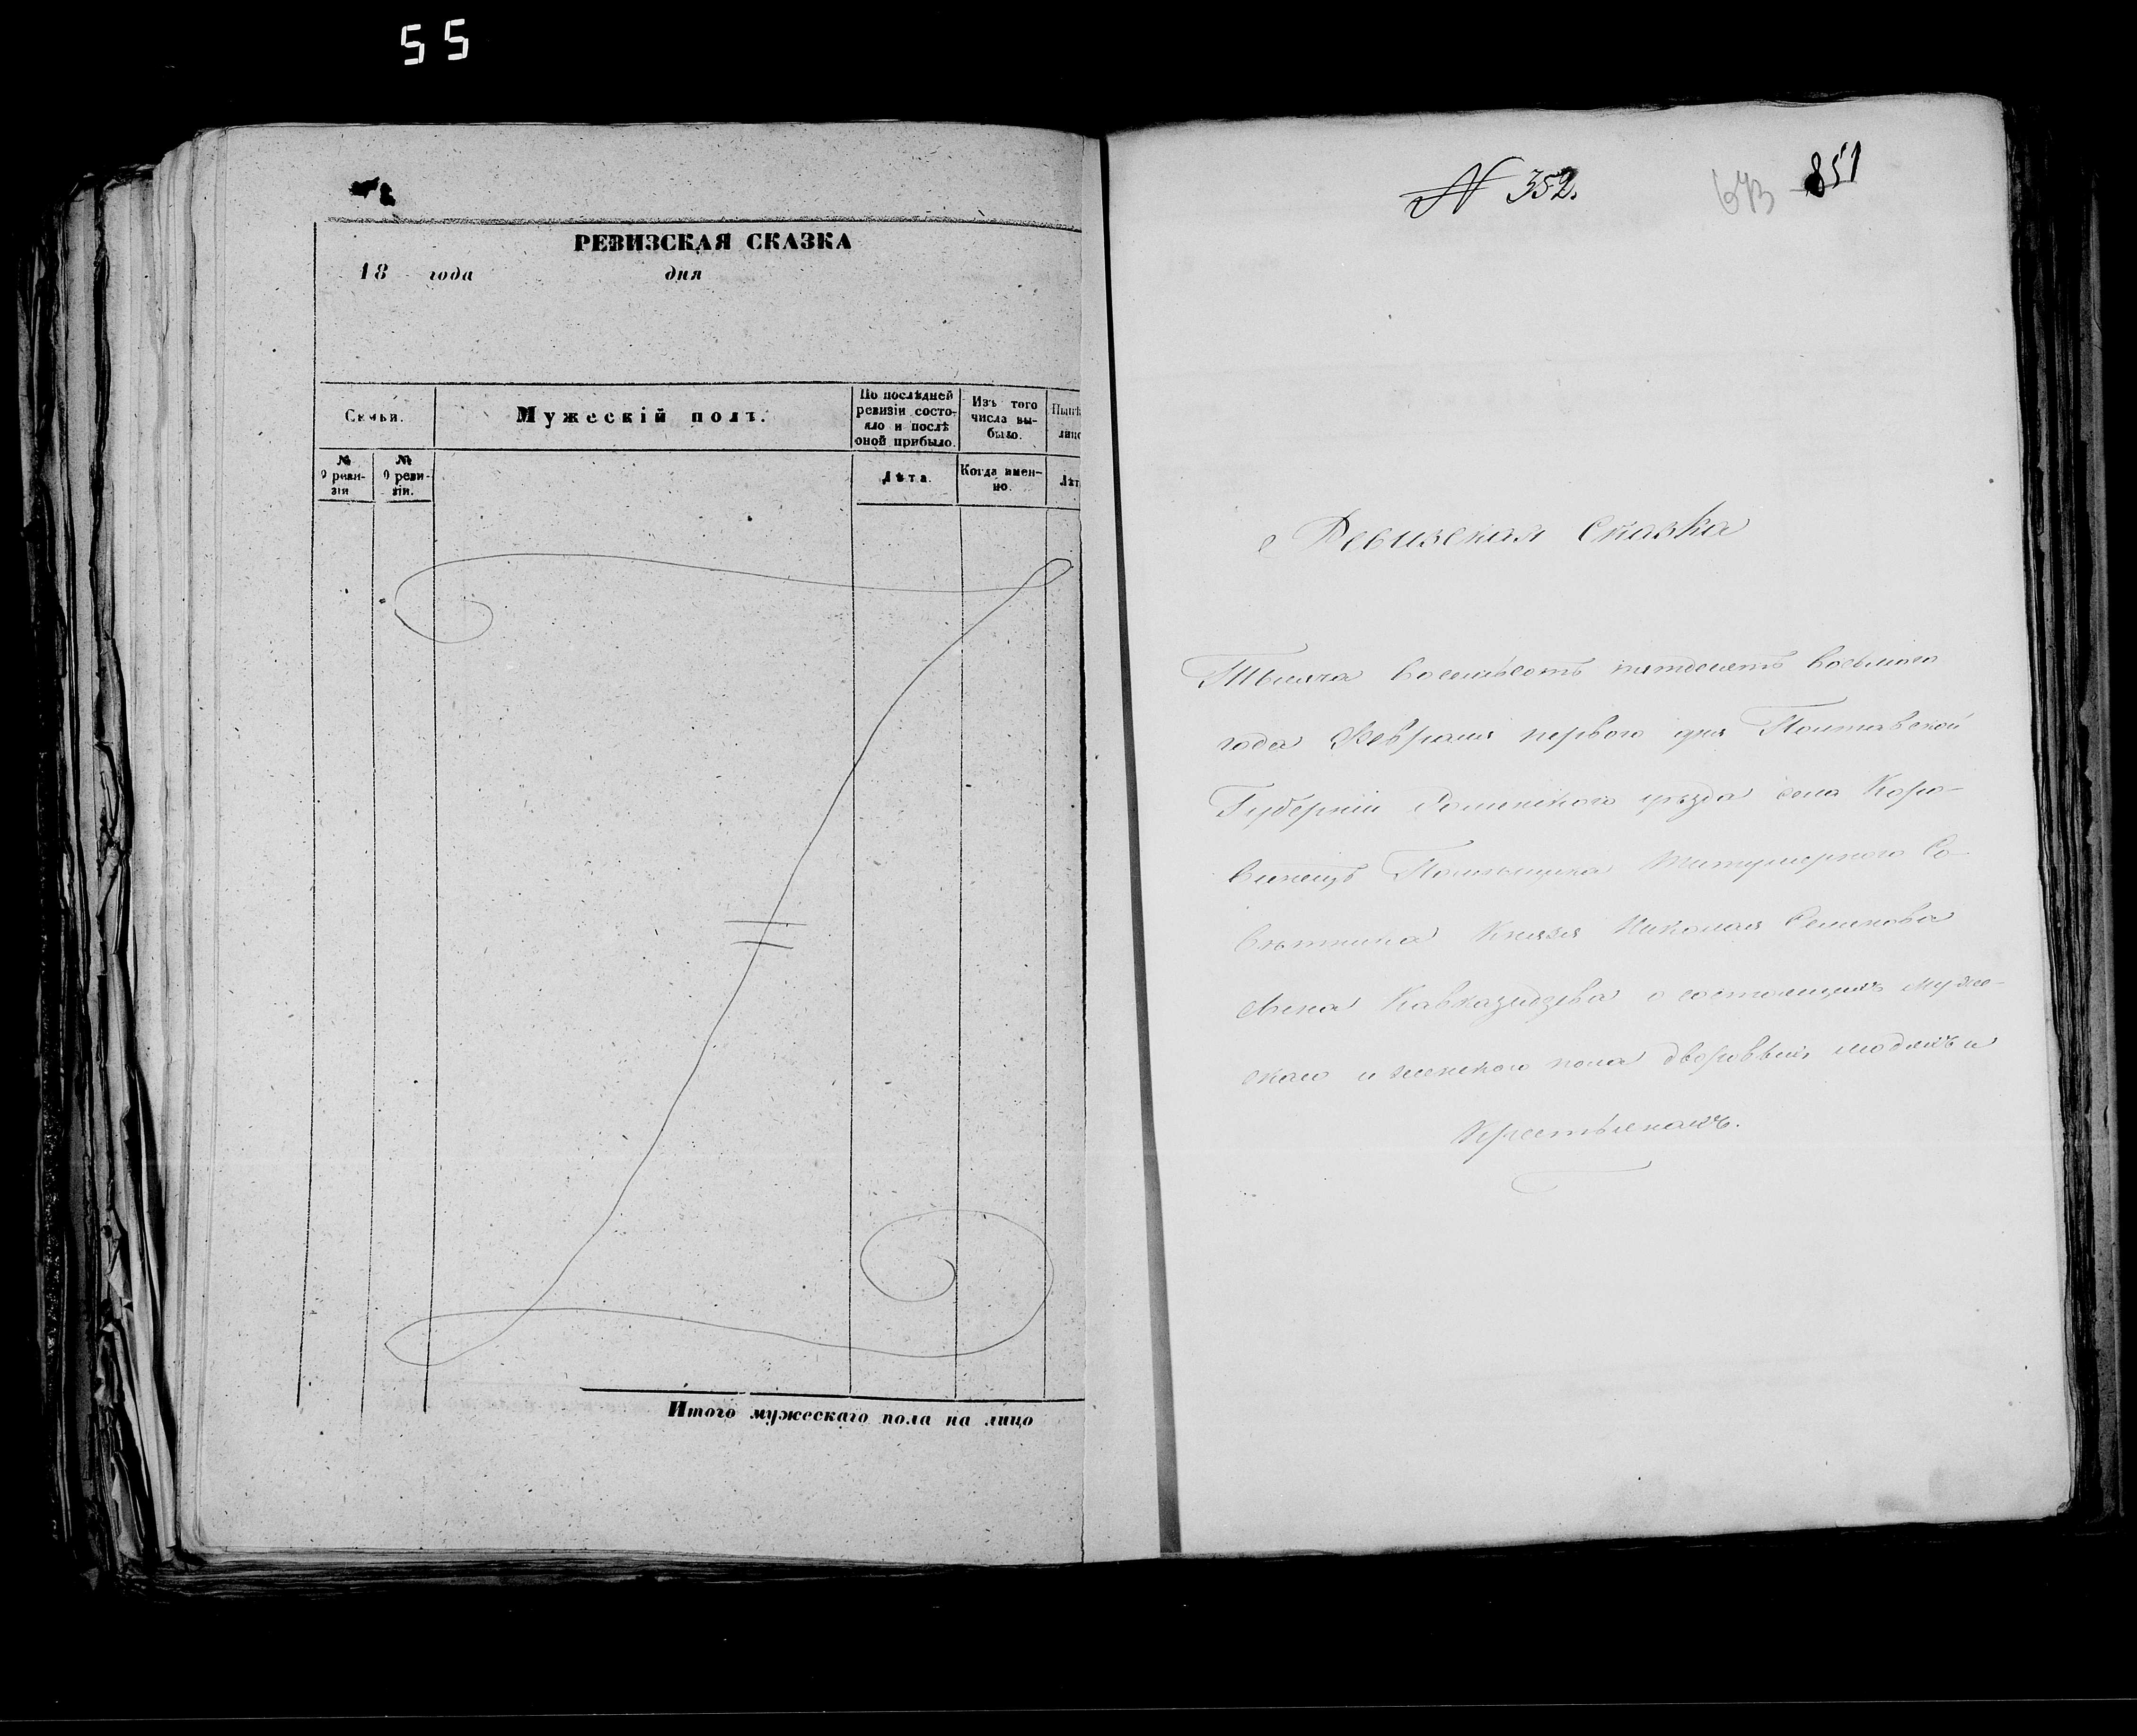 55
РЕВИЗСКАЯ СКАЗКА
18 года дня
Семьи.
Мужескій полъ.
По послѣдней ревизіи состо-
яло и послѣ
оной прибыло.
Изъ того
числа вы-
было.
№
ревизіи
№
ревизіи.
Лѣта.
Когда имен-
но.
Итого мужескаго пола на лицо
N 352.
673 851
Ревизская Сказка
Тысяча восемьсотъ пятдесятъ восьмого
года Февраля первого дня Полтавской
Губерніи Роменского уѣзда села Коро-
винецъ Помѣщика Титулярного Со-
вѣтника Князя Николая Семенова
сына Кавказидзева о состоящихъ муже-
скаго и женского пола дворовыхъ людяхъ и
Крестьянахъ.